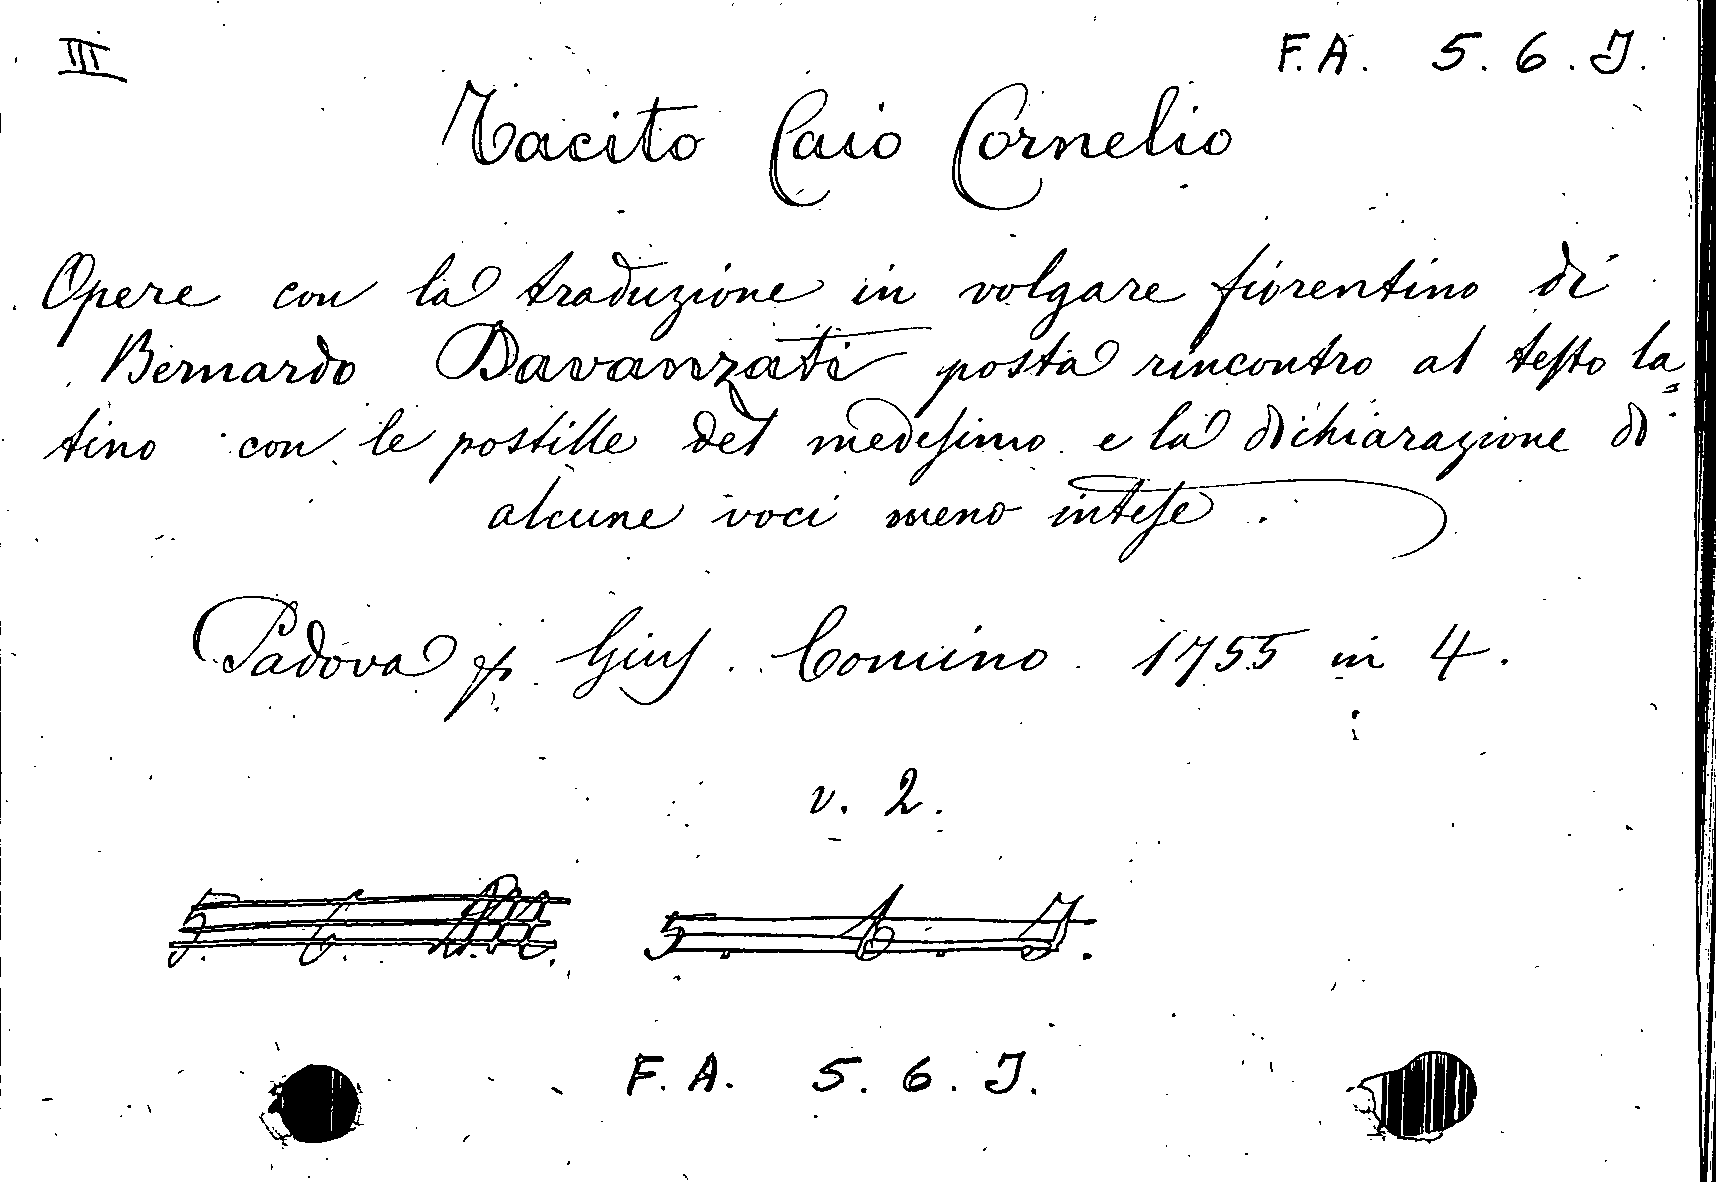 III
F.A. 5.6.J.
Tacito Caio Cornelio
Opere con la traduzione in volgare fiorentino di
Bernardo Davanzati posta rincontro al testo la=
tino con le postille del medesimo e la dichiarazione di
alcune voci meno intese.
Padova p. Gius. Comino 1755 in 4.
v. 2.
5. 6. J.
F.A. 5.6.J.